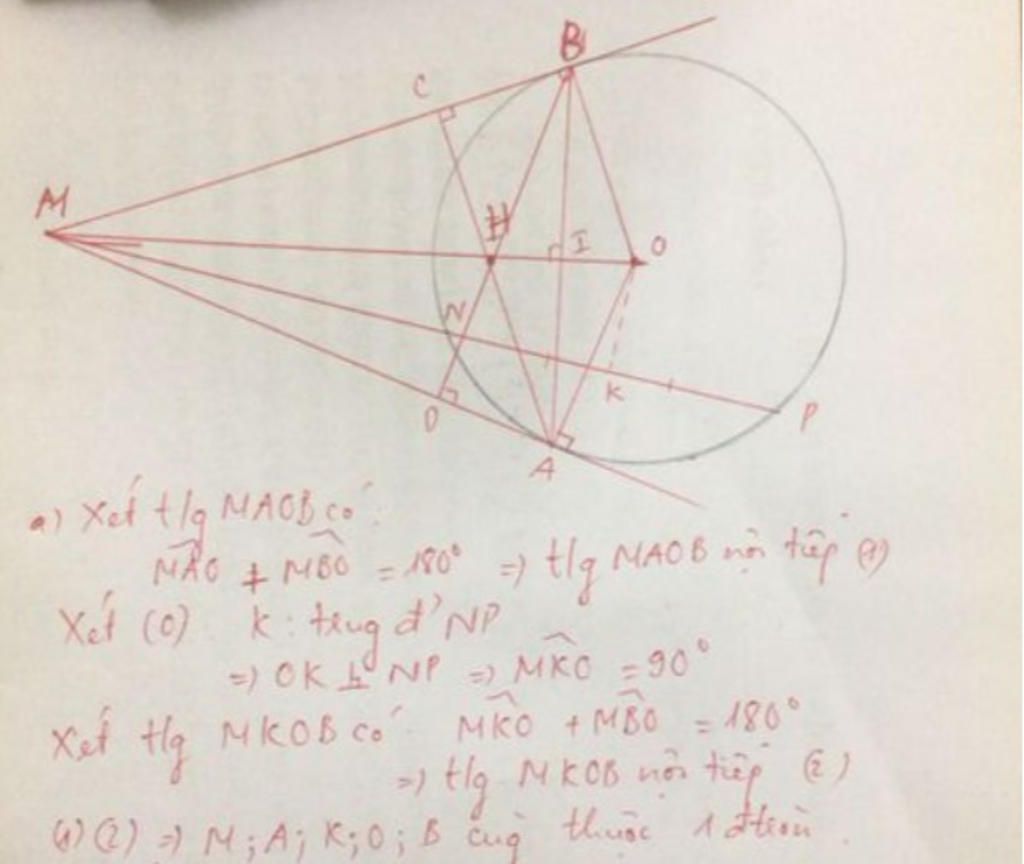 B
C
M
H
I
O
N
K
D
P
A
a) Xét t/g MAOB có:
MAO + MBO = 180° => t/g MAOB nội tiếp (1)
Xét (O) K: trug đ' NP
=> OK ⊥ NP => MKO = 90°
Xét t/g MKOB có MKO + MBO = 180°
=> t/g MKOB nội tiếp (2)
(1)(2) => M; A; K; O; B cùg thuộc 1 đtròn.